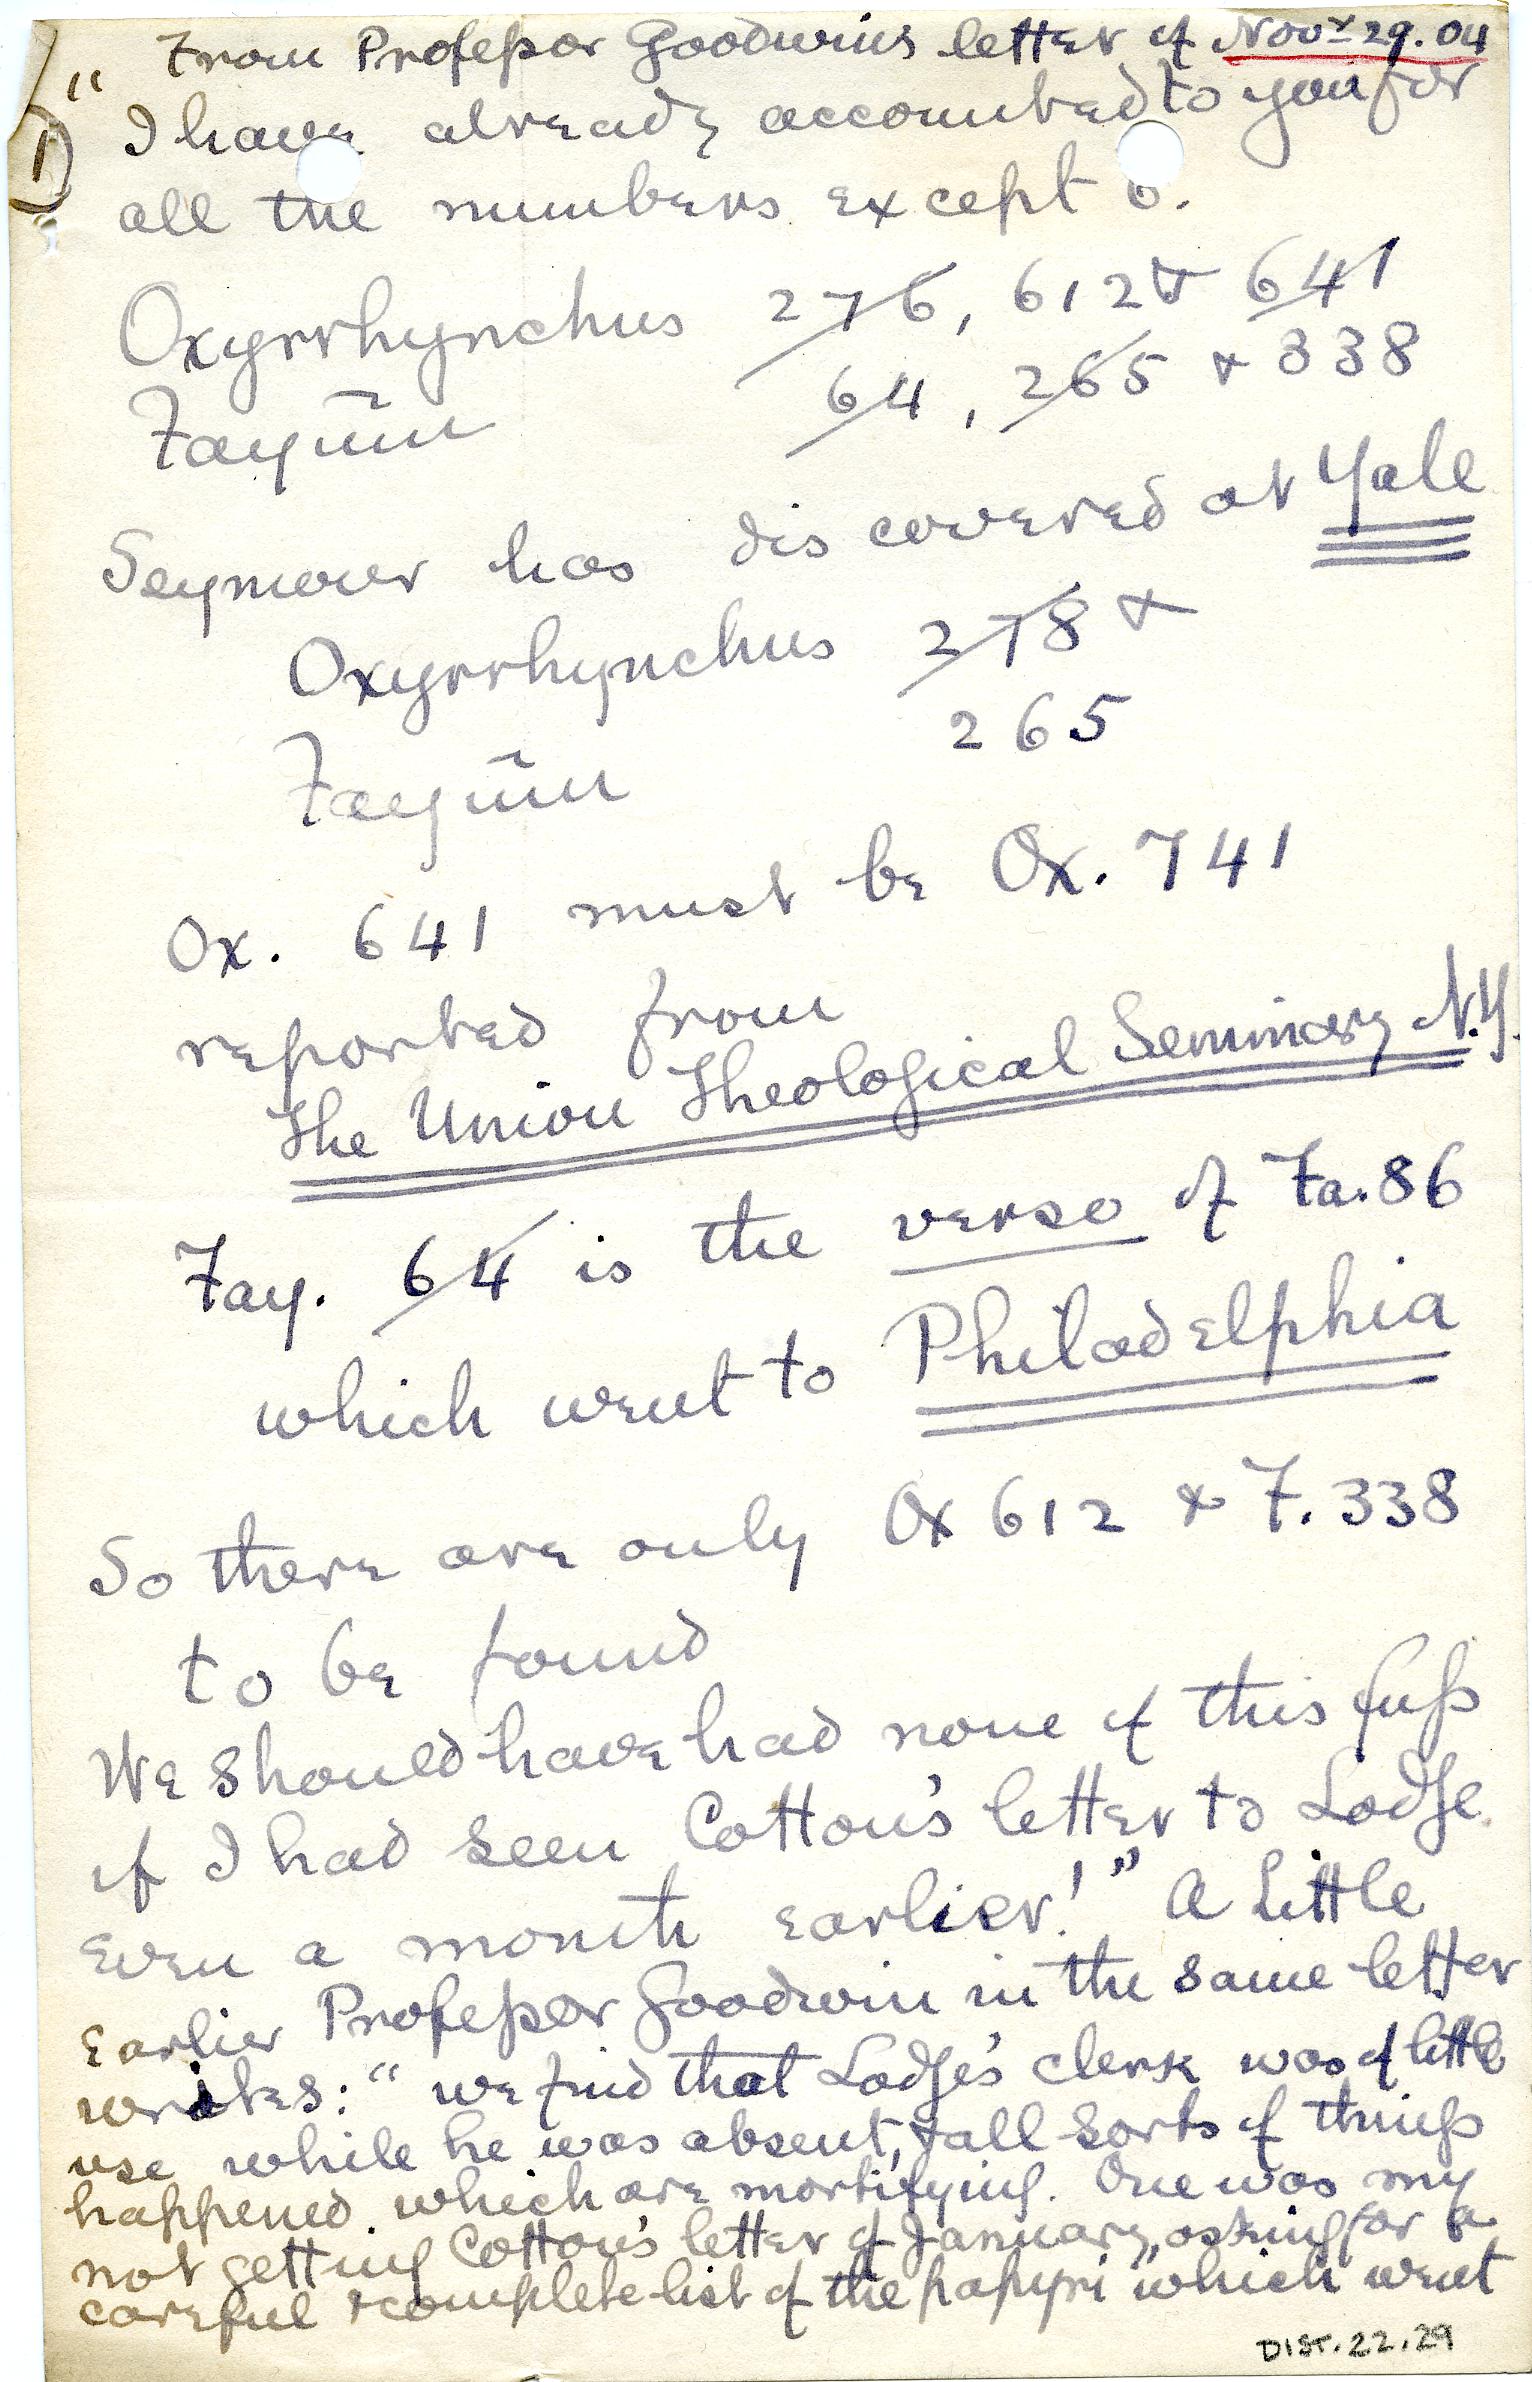 From Professor Goodwin's letter of Novr 29.04
1
" I have already accounted to you for
all the numbers except 6.
Oxyrrhynchus 276, 612 & 641
Fayūm 64, 265 & 338
Seymour has discovered at Yale
Oxyrrhynchus 278 &
Fayūm 265
Ox. 641 must be Ox. 741
reported from
The Union Theological Seminary N.Y.
Fay. 64 is the verso of Fa. 86
which went to Philadelphia
So there are only Ox 612 & F. 338
to be found
We should have had none of this fuss
if I had seen Cotton's letter to Lodge
even a month earlier!" A little
earlier Professor Goodwin in the same letter
writes: "we find that Lodge's clerk was of little
use while he was absent, & all sorts of things
happened which are mortifying. One was my
not getting Cotton's letter of January, asking for a
careful & complete list of the papyri" which went
DIST.22.29